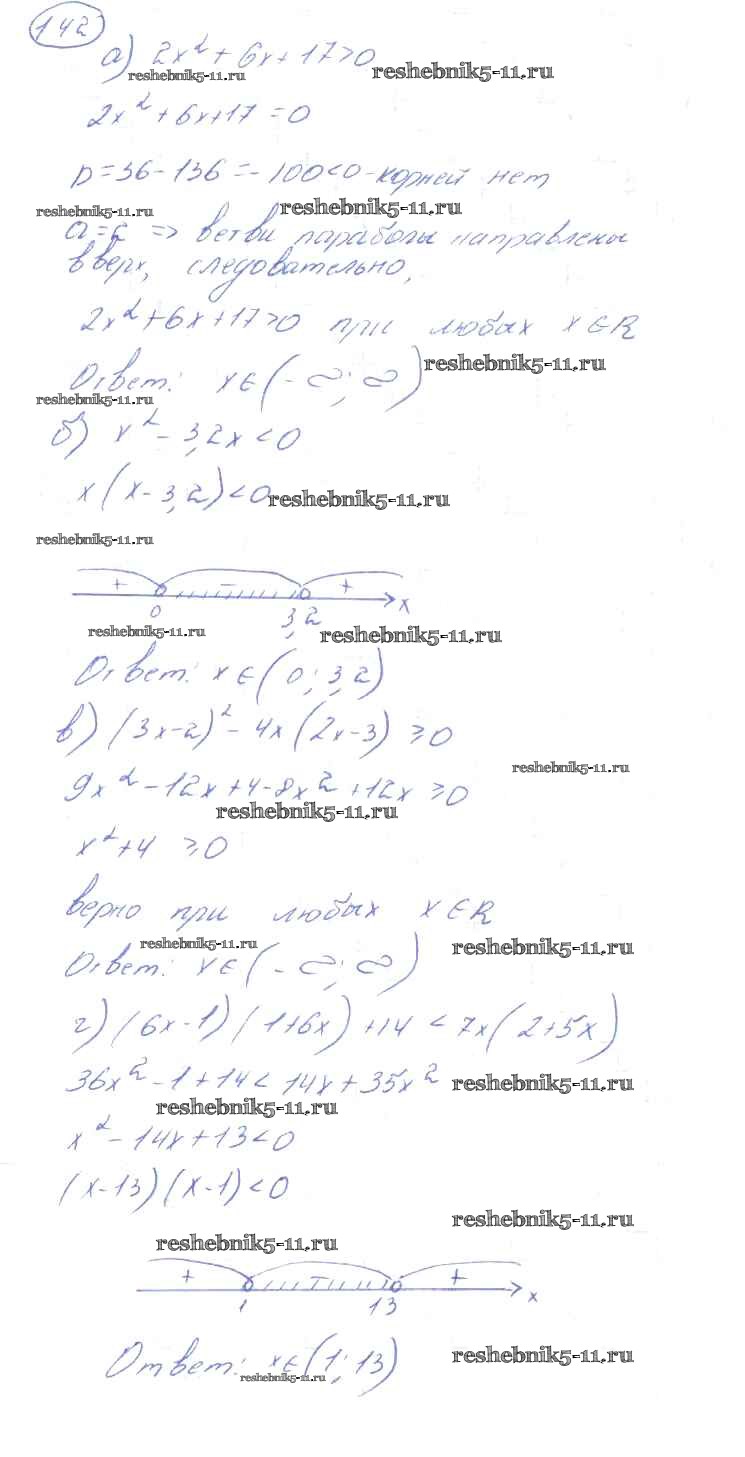 142
а) 2x² + 6x + 17 > 0
reshebnik5-11.ru
reshebnik5-11.ru
2x² + 6x + 17 = 0
D = 36 - 136 = -100 < 0 - корней нет
reshebnik5-11.ru
reshebnik5-11.ru
=> ветви параболы направлены
вверх, следовательно,
2x² + 6x + 17 > 0 при любых x ∈ R
reshebnik5-11.ru
Ответ: x ∈ (-∞; ∞)
reshebnik5-11.ru
б) x² - 3,2x < 0
x(x - 3,2) < 0
reshebnik5-11.ru
reshebnik5-11.ru
+ - +
0 3,2 x
reshebnik5-11.ru
reshebnik5-11.ru
Ответ: x ∈ (0; 3,2)
в) (3x-2)² - 4x(2x-3) ≥ 0
reshebnik5-11.ru
9x² - 12x + 4 - 8x² + 12x ≥ 0
reshebnik5-11.ru
x² + 4 ≥ 0
верно при любых x ∈ R
reshebnik5-11.ru
reshebnik5-11.ru
Ответ: x ∈ (-∞; ∞)
г) (6x-1)(1+6x) + 14 < 7x(2+5x)
36x² - 1 + 14 < 14x + 35x²
reshebnik5-11.ru
reshebnik5-11.ru
x² - 14x + 13 < 0
(x-13)(x-1) < 0
reshebnik5-11.ru
reshebnik5-11.ru
+ - +
1 13 x
Ответ: x ∈ (1; 13)
reshebnik5-11.ru
reshebnik5-11.ru